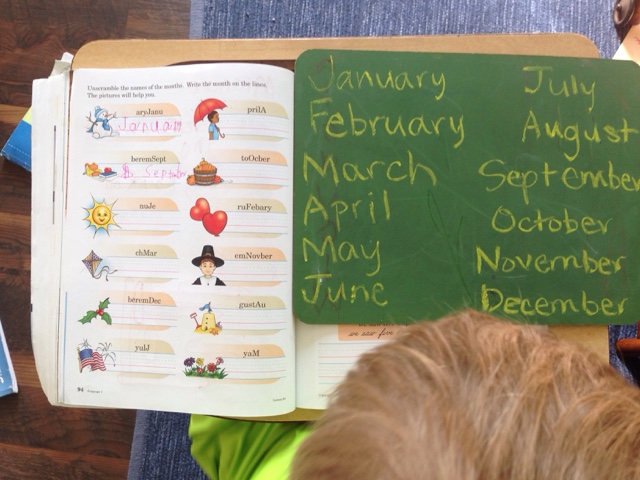 Unscramble the names of the months. Write the month on the lines.
The pictures will help you.
aryJanu
January
prilA
beremSept
S. September
toOcber
nuJe
ruFebary
chMar
emNovber
beremDec
gustAu
yulJ
yaM
94
January
February
March
April
May
June
July
August
September
October
November
December